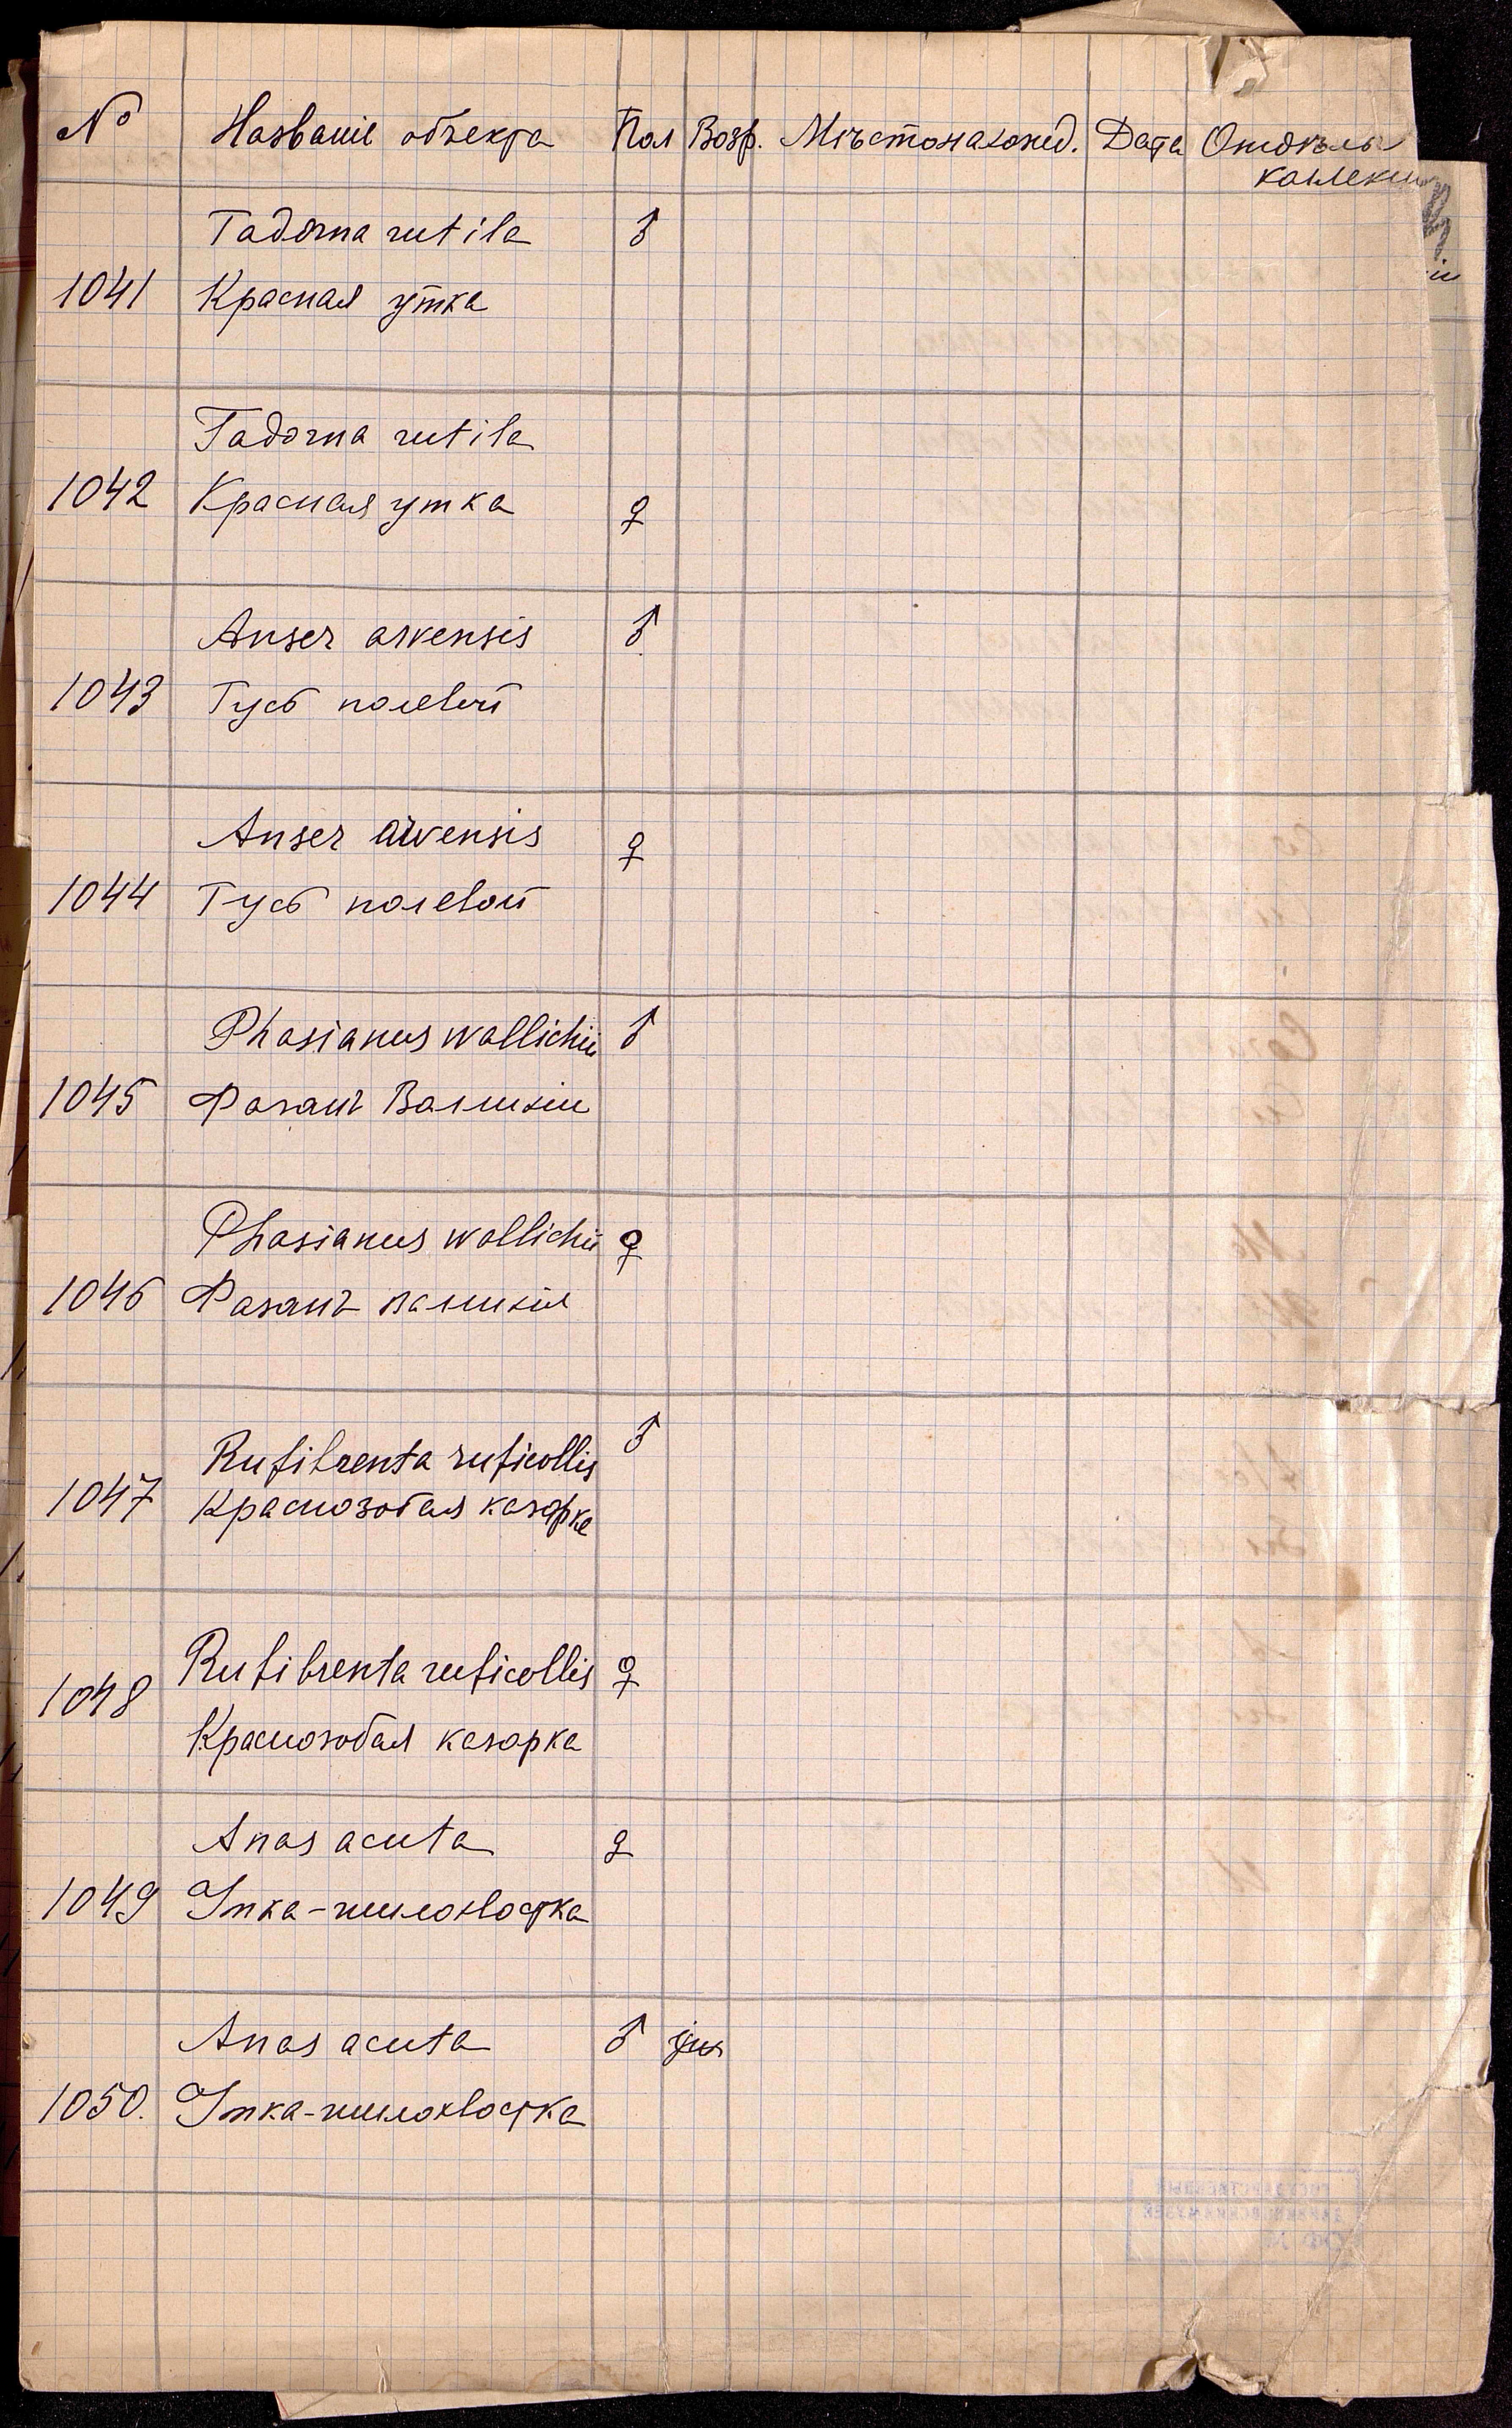 № Названіе объекта Пол Возр. Мѣстонахожд. Дата Отдѣлы
коллекции
Tadorna rutila ♂
1041 Красная утка
Tadorna rutila
1042 Красная утка ♀
Anser arvensis ♂
1043 Гусь полевой
Anser arvensis ♀
1044 Гусь полевой
Phasianus wallichii ♂
1045 Фазанъ Валлихіи
Phasianus wallichii ♀
1046 Фазанъ валлихіи
Rufibrenta ruficollis ♂
1047 Краснозобая казарка
Rufibrenta ruficollis ♀
1048 Краснозобая казарка
Anas acuta ♀
1049 Утка-шилохвостка
Anas acuta ♂ juv
1050. Утка-шилохвостка